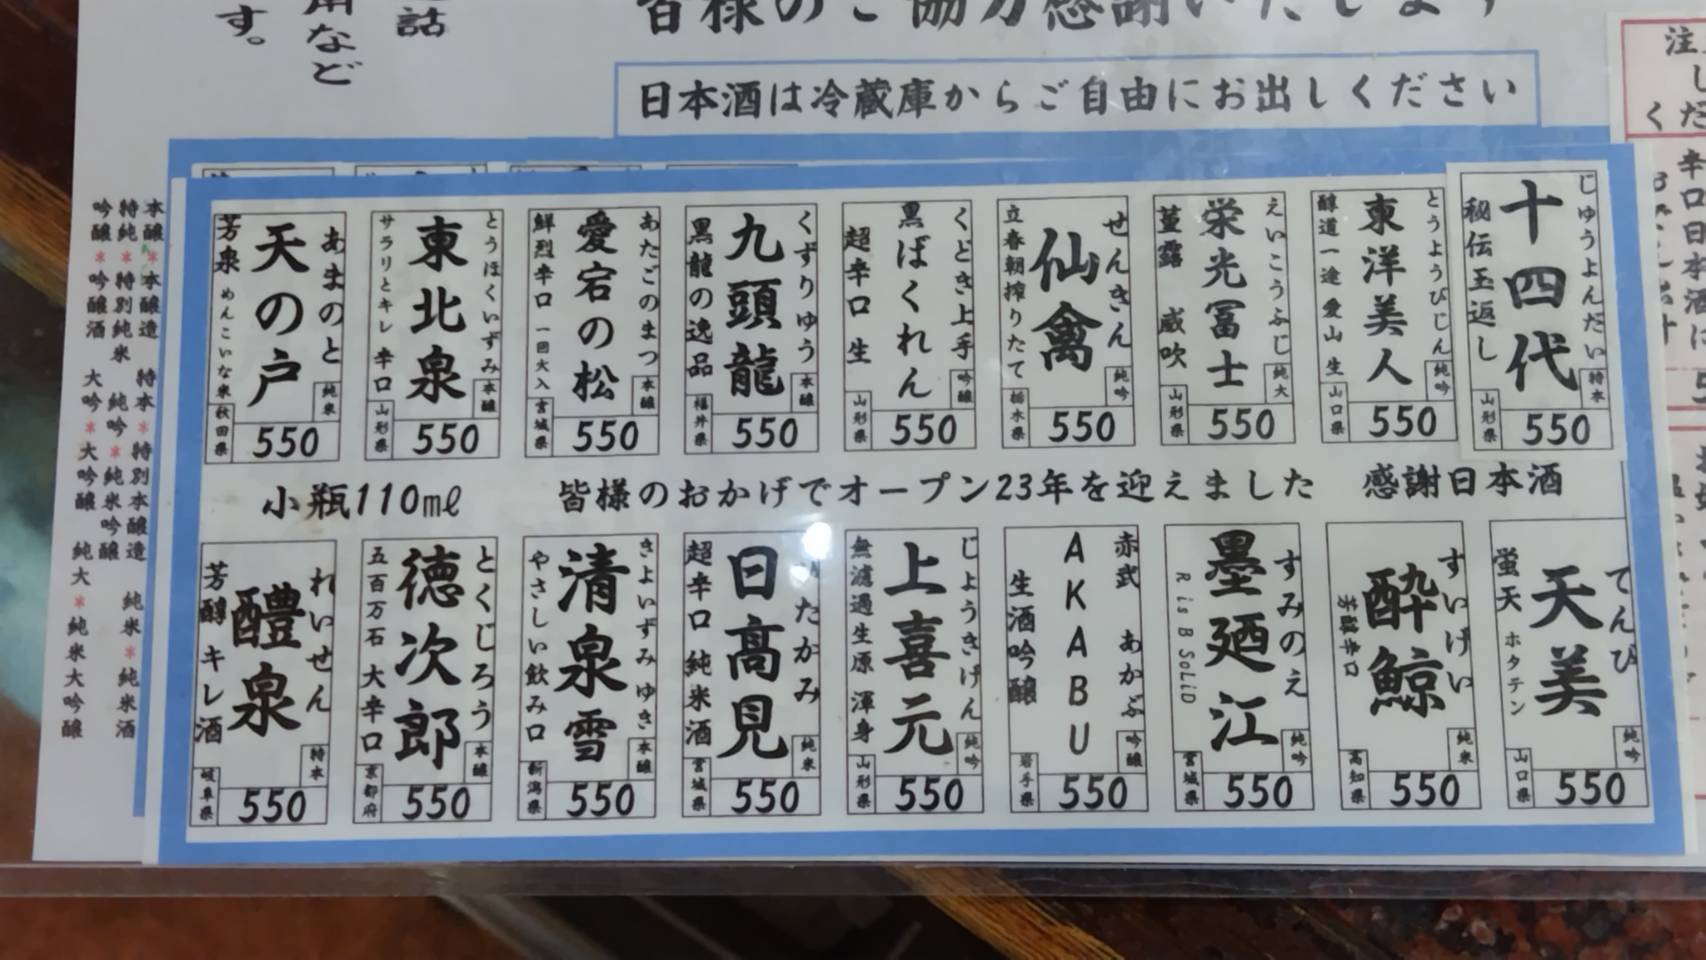 皆様のご協力感謝いたします
話
用など
す。
日本酒は冷蔵庫からご自由にお出しください
じゅうよんだい
十四代
秘伝玉返し
特本
山形県
550
とうようびじん
東洋美人
醇道一途 愛山 生
純吟
山口県
550
えいこうふじ
栄光冨士
菫露 威吹
純大
山形県
550
せんきん
仙禽
立春朝搾りたて
純吟
栃木県
550
くどき上手
黒ばくれん
超辛口 生
吟醸
山形県
550
くずりゅう
九頭龍
黒龍の逸品
本醸
福井県
550
あたごのまつ
愛宕の松
鮮烈辛口 一回火入
本醸
宮城県
550
とうほくいずみ
東北泉
サラリとキレ 辛口
本醸
山形県
550
あまのと
天の戸
芳泉 めんこいな米
純米
秋田県
550
小瓶110㎖ 皆様のおかげでオープン23年を迎えました 感謝日本酒
てんび
天美
蛍天 ホタテン
純吟
山口県
550
すいげい
酔鯨
純米
高知県
550
すみのえ
墨廼江
R is B SOLID
純吟
宮城県
550
赤武 あかぶ
AKABU
生酒吟醸
吟醸
岩手県
550
じょうきげん
上喜元
無濾過生原 渾身
純吟
山形県
550
たかみ
日高見
超辛口純米酒
純米
宮城県
550
きよいずみ ゆき
清泉 雪
やさしい飲み口
本醸
新潟県
550
とくじろう
徳次郎
五百万石 大辛口
本醸
京都府
550
れいせん
醴泉
芳醇 キレ酒
特本
岐阜県
550
本醸*本醸造 特本*特別本醸造
特純*特別純米 純吟*純米吟醸 純米*純米酒
吟醸*吟醸酒 大吟*大吟醸 純大*純米大吟醸